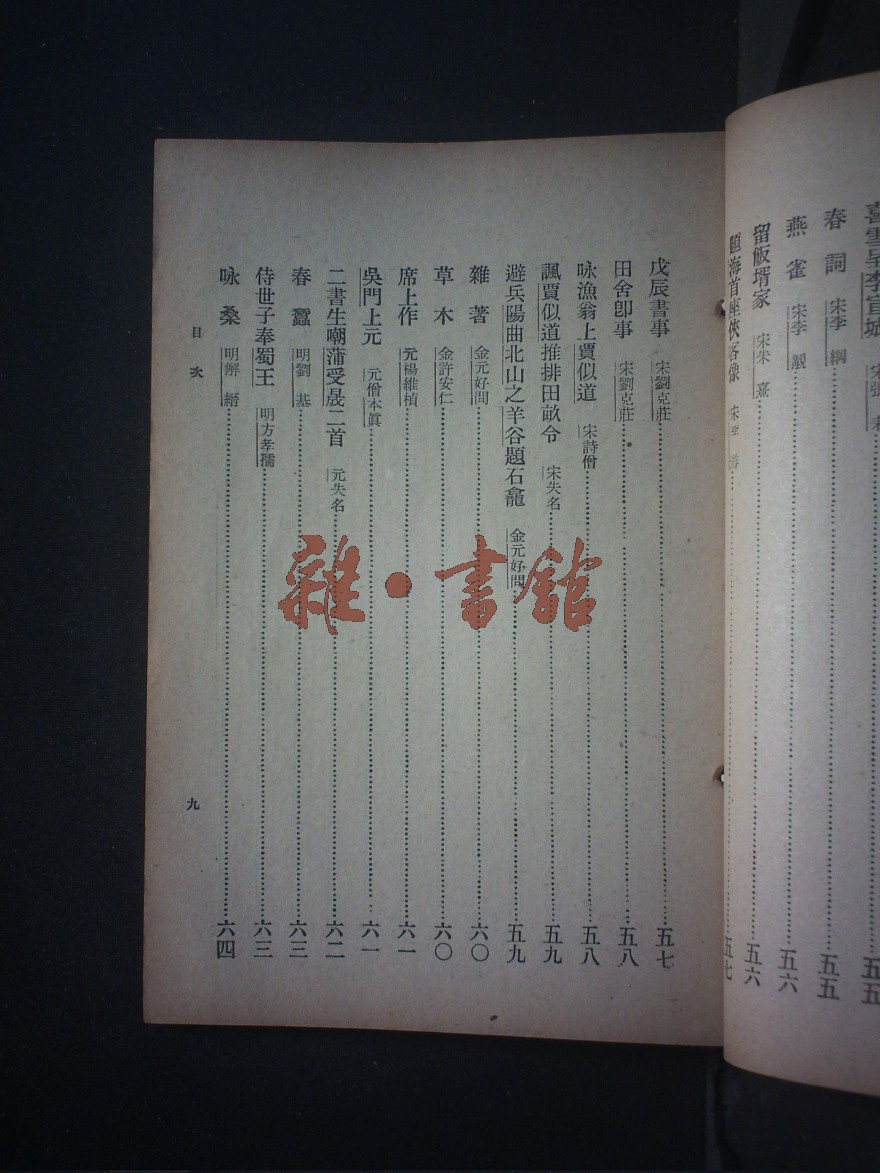 喜雪呈李宣城 宋張 耒 五五
春詞 宋李 綱 五五
燕雀 宋李 覯 五六
留飯壻家 宋朱 熹 五六
題海首座俠客像 宋 五七
戊辰書事 宋劉克莊 五七
田舍卽事 宋劉克莊 五八
咏漁翁上賈似道 宋詩僧 五八
諷賈似道推排田畝令 宋失名 五九
避兵陽曲北山之羊谷題石龕 金元好問 五九
雜著 金元好問 六〇
草木 金許安仁 六〇
席上作 元楊維楨 六一
吳門上元 元僧本眞 六一
二書生嘲蒲受晟二首 元失名 六二
春蠶 明劉 基 六三
侍世子奉蜀王 明方孝孺 六三
咏桑 明解 縉 六四
目次
九
雜·書館